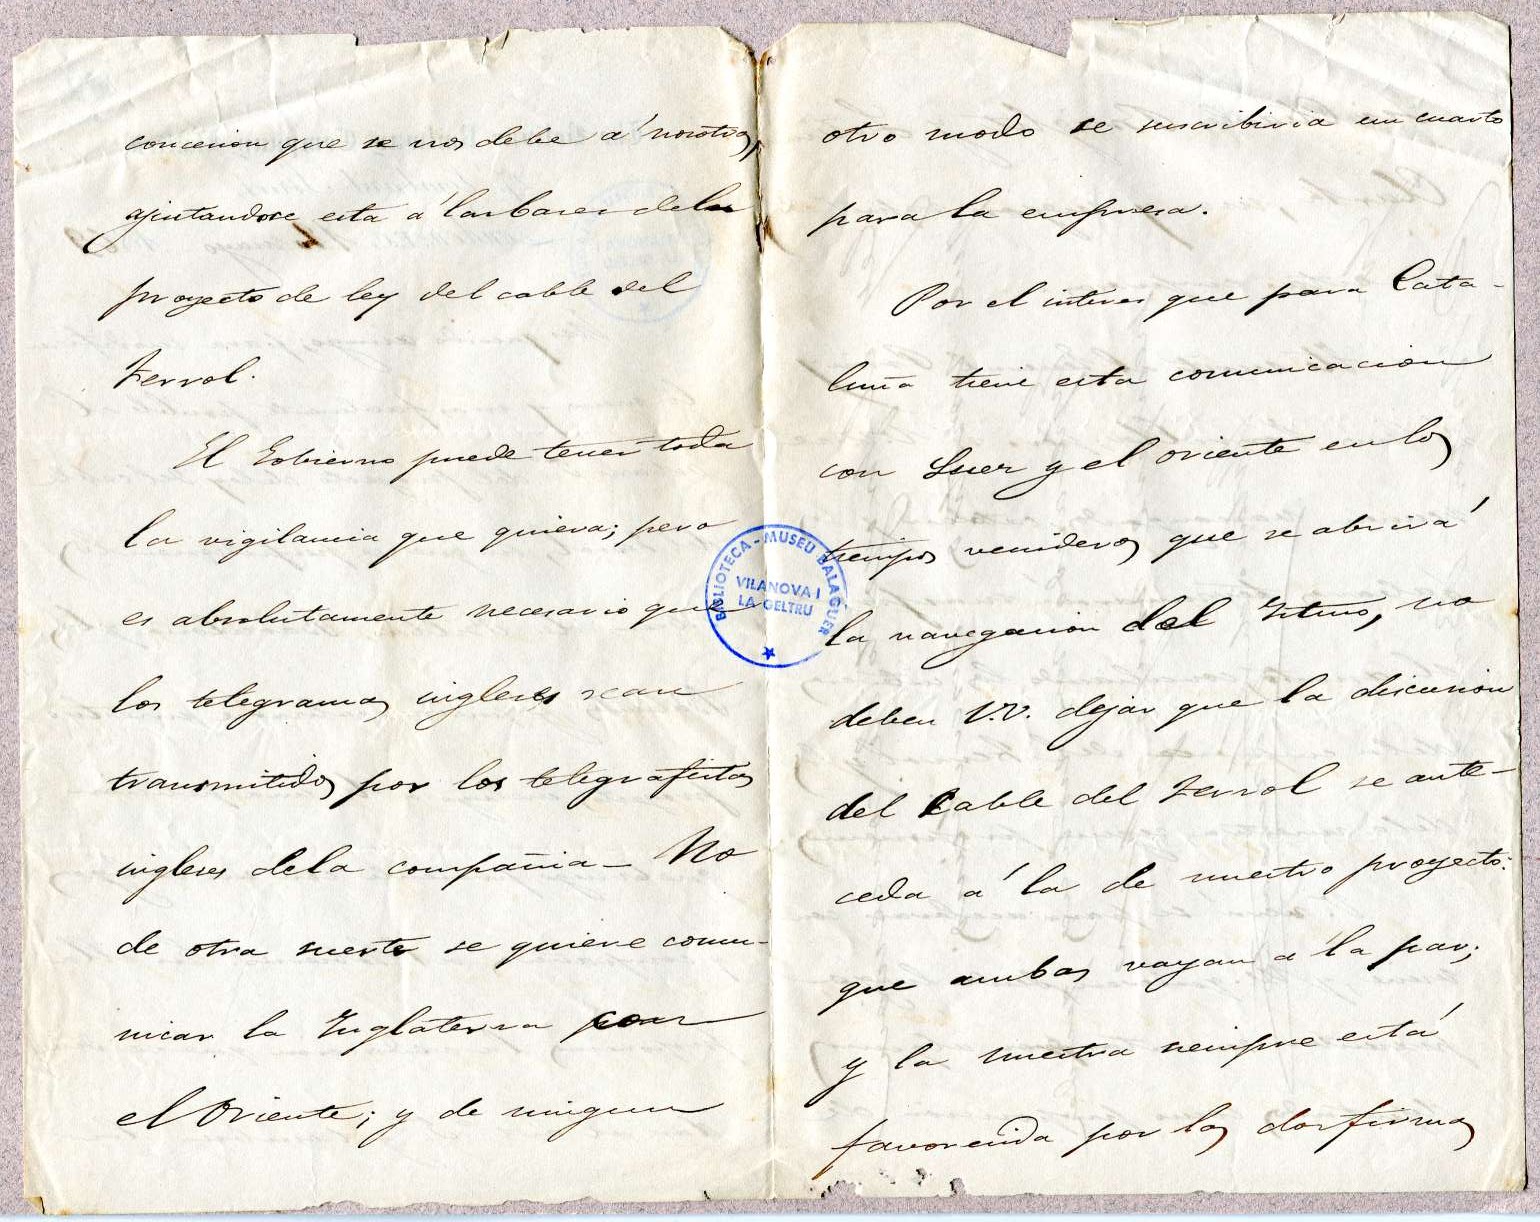 concesion que se nos debe á nosotros,
ajustandose esta á las bases del
proyecto de ley del cable del
Ferrol.
El Gobierno puede tener toda
la vigilancia que quiera; pero
es absolutamente necesario que
los telegramas ingleses sean
transmitidos por los telegrafistas
ingleses dela compañia - No
de otra suerte se quiere comu-
nicar la Inglaterra con
el Oriente; y de ningun
otro modo se suscribiria un cuarto
para la empresa.
Por el interes que para Cata-
luña tiene esta comunicacion
con Suez y el oriente en los
tiempos venideros que se abrirá
la navegacion del Itsmo, no
deben V.V. dejar que la discusion
del Cable del Ferrol se ante-
ceda á la de nuestro proyecto:
que ambas vayan a la par;
y la nuestra siempre está
favorecida por las dos firmas
BIBLIOTECA - MUSEU BALAGUER
VILANOVA I
LA GELTRU